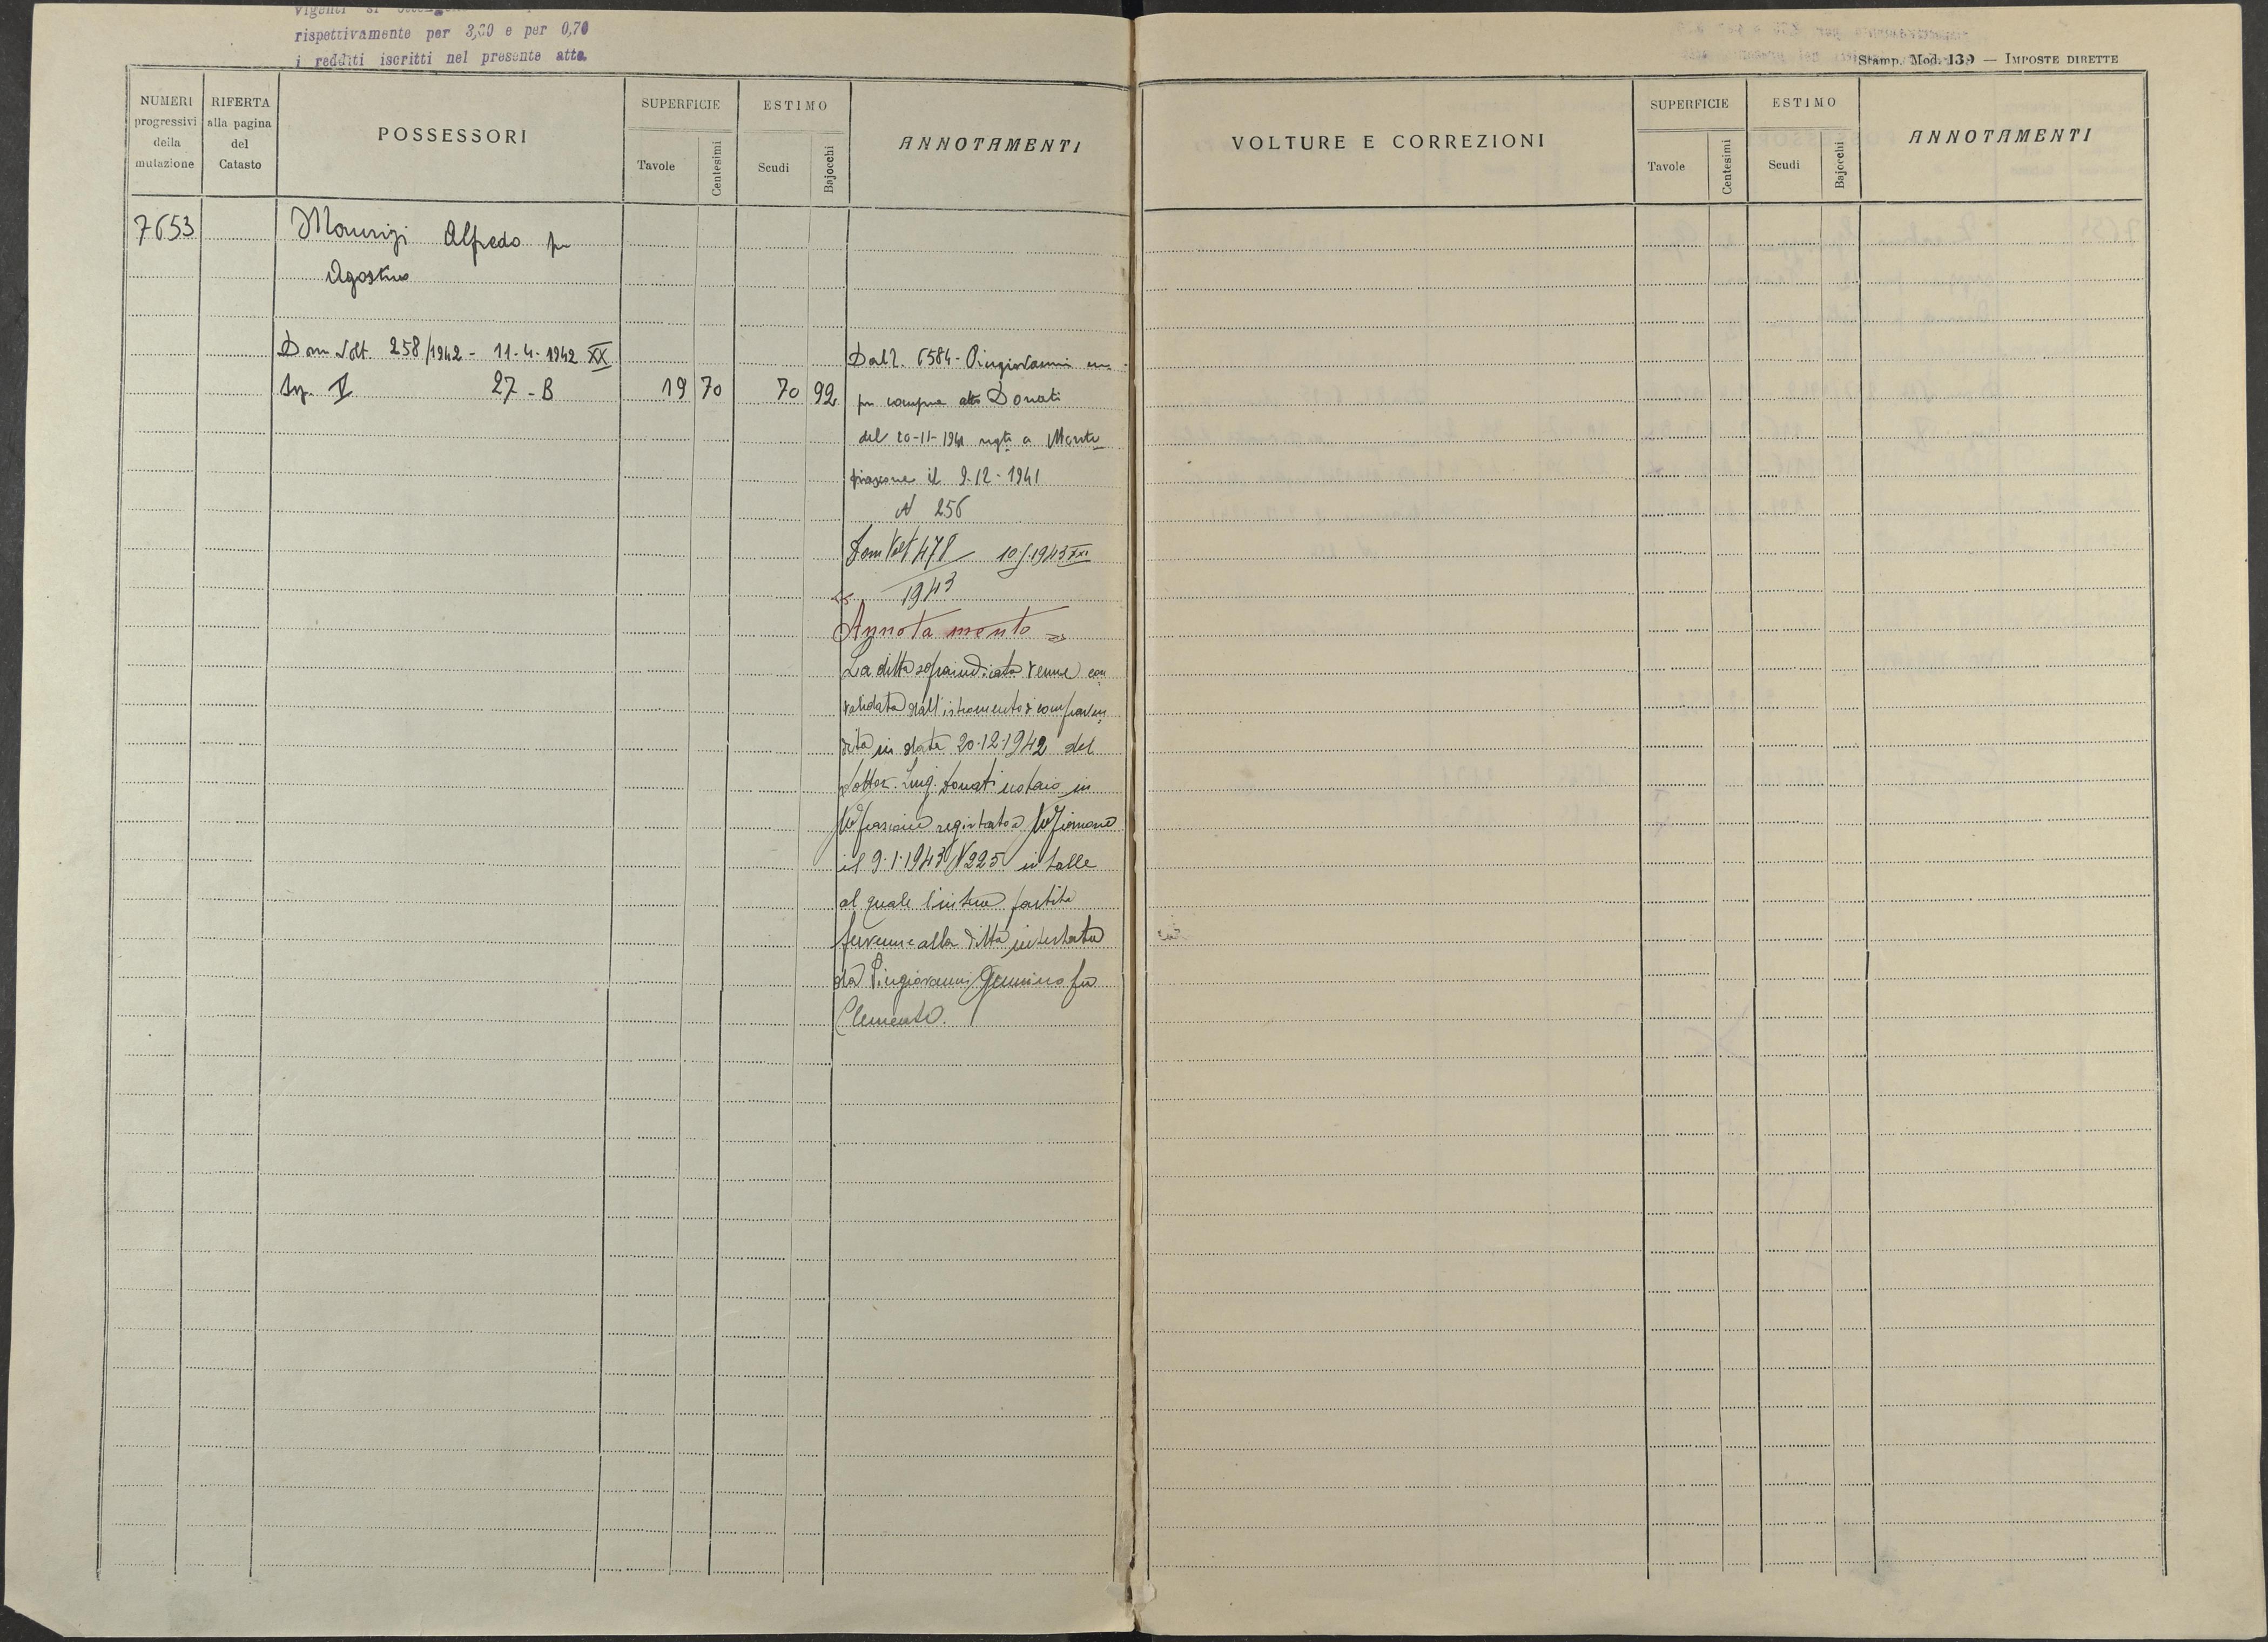 rispettivamente per 3,60 e per 0,70
i redditi iscritti nel presente atto.
Stamp. Mod. 130 — IMPOSTE DIRETTE
NUMERI progressivi della mutazione
RIFERTA alla pagina del Catasto
POSSESSORI
SUPERFICIE
Tavole
Centesimi
ESTIMO
Scudi
Bajocchi
ANNOTAMENTI
VOLTURE E CORREZIONI
SUPERFICIE
Tavole
Centesimi
ESTIMO
Scudi
Bajocchi
ANNOTAMENTI
7653
Maurizi Alfredo fu
Agostino
Dom Volt. 258/1942 - 11-4-1942 XX
Sez. V 27-B 19 70 70 92
Dal N. 6584 - Pingiovanni
per compra atto Donati
del 20-11-1941 regto a Monte
fiascone il 9-12-1941
N 256
Dom Volt 478 1943XXI
1943
Annotamento
La ditta sopraindicata venne con
validata dall'istromento di compraven
dita in data 20-12-1942 del
dottor. Luigi Donati notaio in
Mfiascone registrato a Mfiascone
il 9-1-1943 N225 in
al quale l'intera partita
pervenne alla ditta intestata
da Pingiovanni Gemino fu
Clemente.